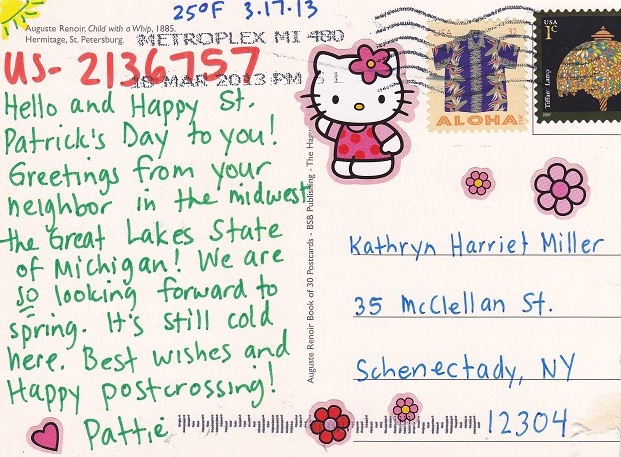 25°F 3.17.13
Auguste Renoir, Child with a Whip, 1885.
Hermitage, St. Petersburg.
METROPLEX MI 480
18 MAR 2013 PM
US-2136757
Hello and Happy St.
Patrick's Day to you!
Greetings from your
neighbor in the midwest
the Great Lakes State
of Michigan! We are
so looking forward to
spring. It's still cold
here. Best wishes and
Happy postcrossing!
Pattie
Auguste Renoir Book of 30 Postcards - BSB Publishing - The Hag
ALOHA
USA
1c
Tiffany Lamp
2007
Kathryn Harriet Miller
35 McClellan St.
Schenectady, NY
12304